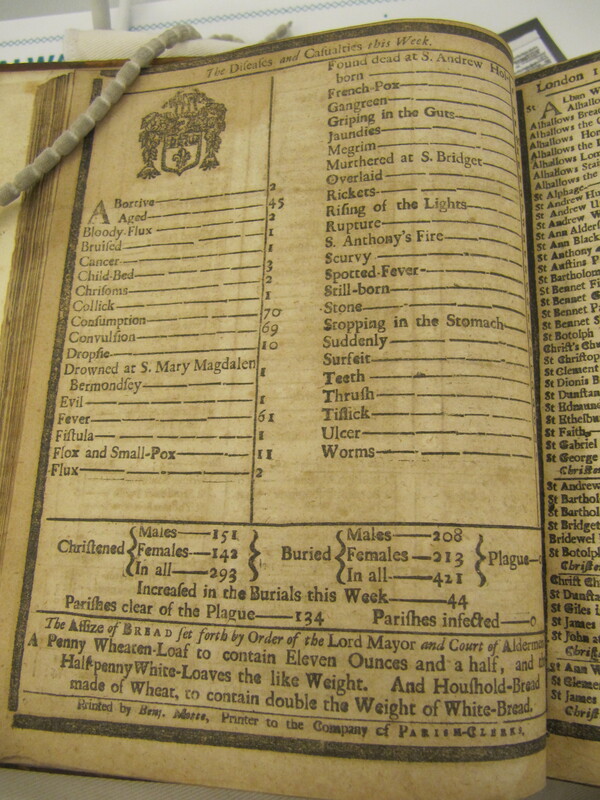 The Diseases and Casualties this Week.
Abortive 2
Aged 45
Bloody-Flux 2
Bruised 1
Cancer 1
Child-Bed 3
Chrisoms 2
Collick 1
Consumption 70
Convulsion 69
Dropsie 10
Drowned at S. Mary Magdalen
Bermondsey 1
Evil 1
Fever 61
Fistula 1
Flox and Small-Pox 11
Flux 2
Found dead at S. Andrew Hol
born
French-Pox
Gangreen
Griping in the Guts
Jaundies
Megrim
Murthered at S. Bridget
Overlaid
Rickets
Rising of the Lights
Rupture
S. Anthony's Fire
Scurvy
Spotted-Fever
Still-born
Stone
Stopping in the Stomach
Suddenly
Surfeit
Teeth
Thrush
Tissick
Ulcer
Worms
Christened { Males—151 Females—142 In all—293 } Buried { Males—208 Females—213 In all—421 } Plague
Increased in the Burials this Week—44
Parishes clear of the Plague—134 Parishes infected—0
The Assize of BREAD set forth by Order of the Lord Mayor and Court of Alderme
A Penny Wheaten-Loaf to contain Eleven Ounces and a half, and th
Half-penny White-Loaves the like Weight. And Houshold-Bread
made of Wheat, to contain double the Weight of White-Bread.
Printed by Benj. Motte, Printer to the Company of PARISH-CLERKS.
London
St Alban W
Alhallows
Alhallows Brea
Alhallows the
Alhallows Hon
Alhallows the
Alhallows Lom
Alhallows Stai
Alhallows the
St Alphage
St Andrew Hu
St Andrew U
St Andrew W
St Ann Alders
St Ann Black
St Anthony
St Austins P
St Bartholom
St Bennet Fi
St Bennet G
St Bennet Pa
St Bennet S
St Botolph
Christ's Chu
St Christop
St Clement
St Dionis B
St Dunstan
St Edmund
St Ethelbu
St Faith
St Gabriel
St George
Christe
St Andrew
St Barthol
St Barthol
St Bridget
Bridewel
St Botolp
Christe
Christ Ch
St Dunsta
St Giles i
St James
St John at
Christe
St Ann W
St Clemen
St James
Christe